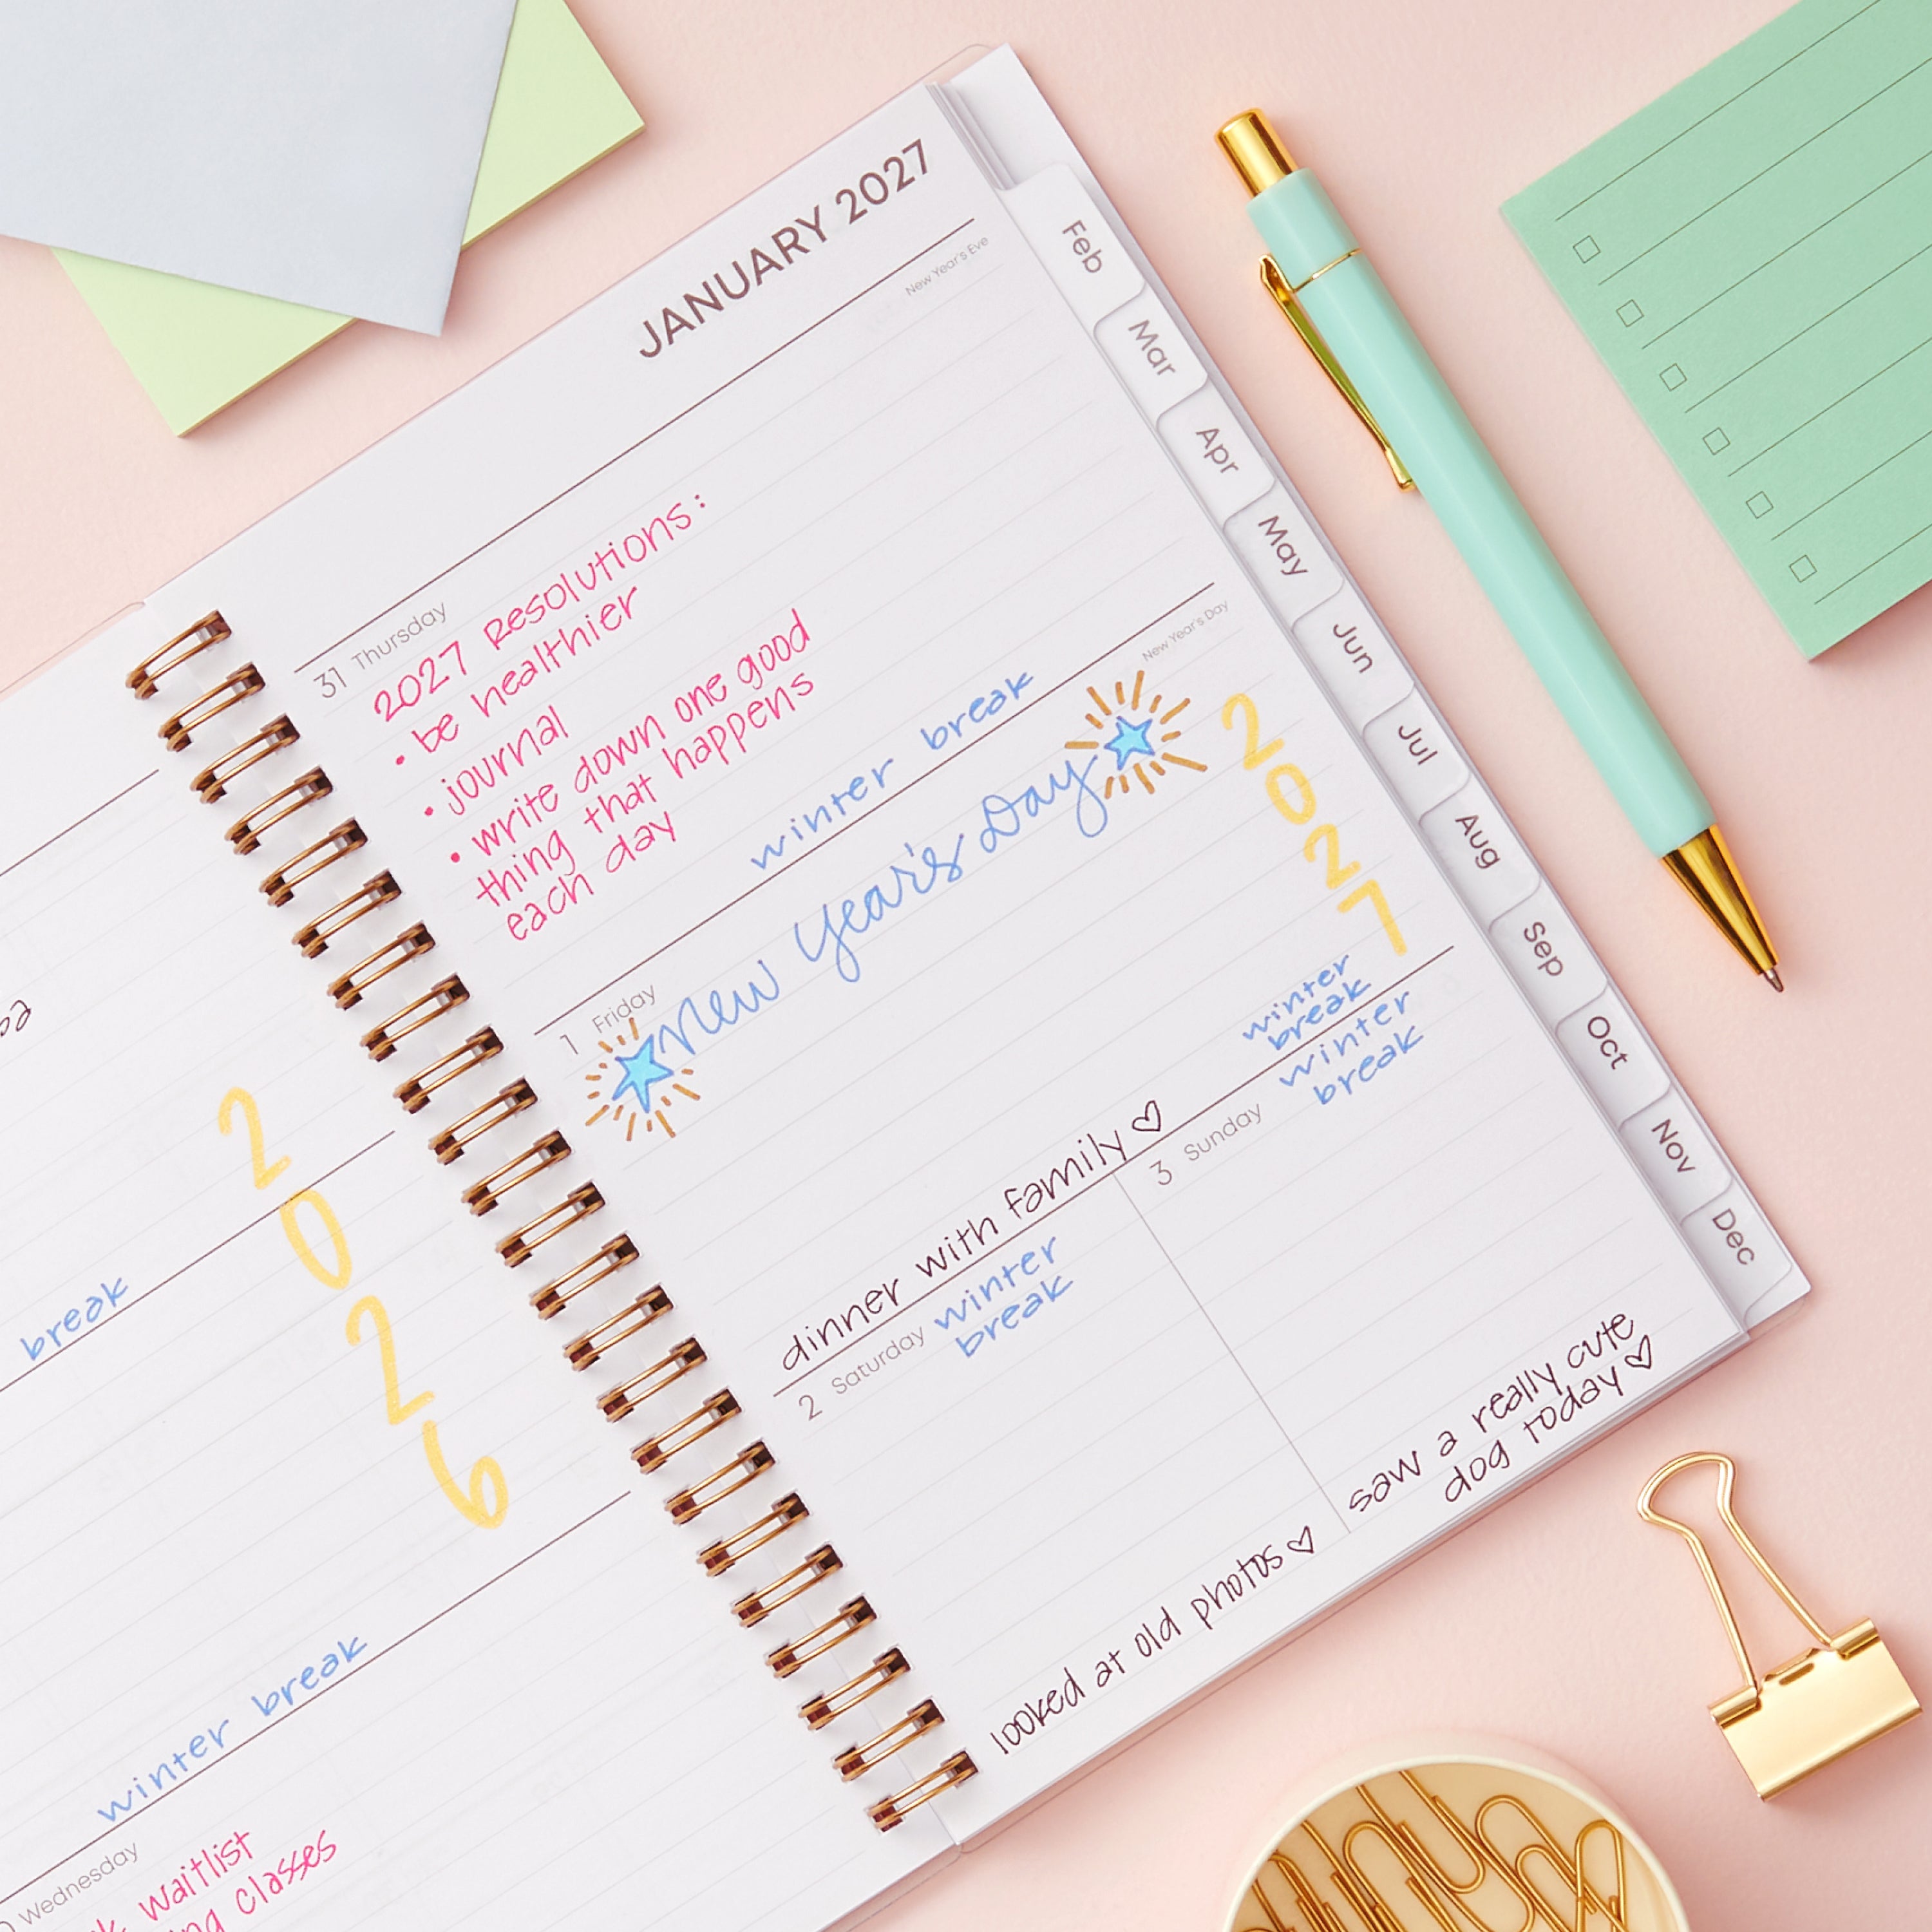 break
2
0
2
6
winter break
Wednesday
waitlist
classes
JANUARY 2027
31 Thursday
New Year's Eve
2027 Resolutions:
• be healthier
• journal
• write down one good
thing that happens
each day
winter break
1 Friday
New Year's Day
New Year's Day
2
0
2
7
winter
break
dinner with family ♡
2 Saturday
winter
break
looked at old photos ♡
3 Sunday
winter
break
saw a really cute
dog today ♡
Feb
Mar
Apr
May
Jun
Jul
Aug
Sep
Oct
Nov
Dec